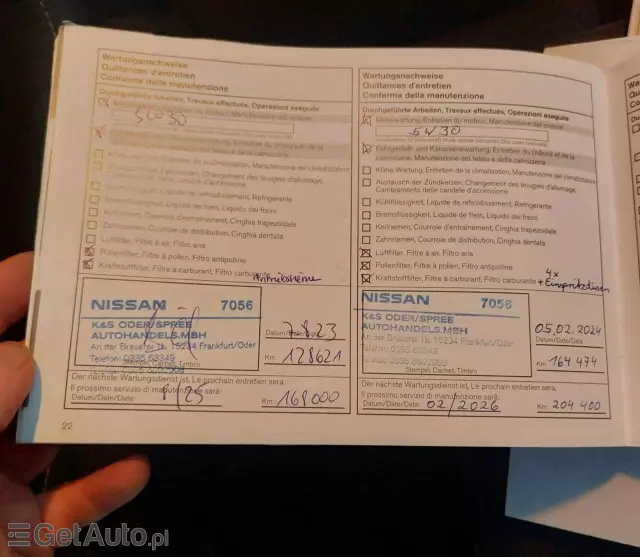 Wartungsnachweise
Quittances d'entretien
Conferme della manutenzione
Durchgeführte Arbeiten, Travaux effectués, Operazioni eseguite
5W30
Zündkerzen, Changement des bougies d'allumage,
Kühlflüssigkeit, Liquide de refroidissement, Refrigerante
Bremsflüssigkeit, Liquide de frein, Liquido dei freni
Keilriemen, Courroie d'entraînement, Cinghia trapezoidale
Zahnriemen, Courroie de distribution, Cinghia dentata
Luftfilter, Filtre à air, Filtro aria
Pollenfilter, Filtre à pollen, Filtro antipolline
Kraftstofffilter, Filtre à carburant, Filtro carburante
NISSAN 7056
K&S ODER/SPREE
AUTOHANDELS.MBH
An der Brauerei 1b, 15234 Frankfurt/Oder
Telefon: 0335 65349
Stempel, Cachet, Timbro
Datum/Date/Data:
Km: 128621
Der nächste Wartungsdienst ist, Le prochain entretien sera,
Il prossimo servizio di manutenzione sarà:
Datum/Date/Data:
Km: 168000
22
Wartungsnachweise
Quittances d'entretien
Conferme della manutenzione
Durchgeführte Arbeiten, Travaux effectués, Operazioni eseguite
Motorwartung, Entretien du moteur, Manutenzione del motore
5W30
Fahrgestell- und Karosseriewartung, Entretien du châssis et de la
carrosserie, Manutenzione del telaio e della carrozzeria
Klima-Wartung, Entretien de la climatisation, Manutenzione del climatizzatore
Austausch der Zündkerzen, Changement des bougies d'allumage,
Cambiamento delle candele d'accensione
Kühlflüssigkeit, Liquide de refroidissement, Refrigerante
Bremsflüssigkeit, Liquide de frein, Liquido dei freni
Keilriemen, Courroie d'entraînement, Cinghia trapezoidale
Zahnriemen, Courroie de distribution, Cinghia dentata
Luftfilter, Filtre à air, Filtro aria
Pollenfilter, Filtre à pollen, Filtro antipolline
4x
Kraftstofffilter, Filtre à carburant, Filtro carburante + Einspritzdüsen
NISSAN 7056
K&S ODER/SPREE
AUTOHANDELS.MBH
An der Brauerei 1b, 15234 Frankfurt/Oder
Stempel, Cachet, Timbro
05.02.2024
Datum/Date/Data:
Km: 164 474
Der nächste Wartungsdienst ist, Le prochain entretien sera,
Il prossimo servizio di manutenzione sarà:
Datum/Date/Data: 02/2026 Km: 204 400
GetAuto.pl